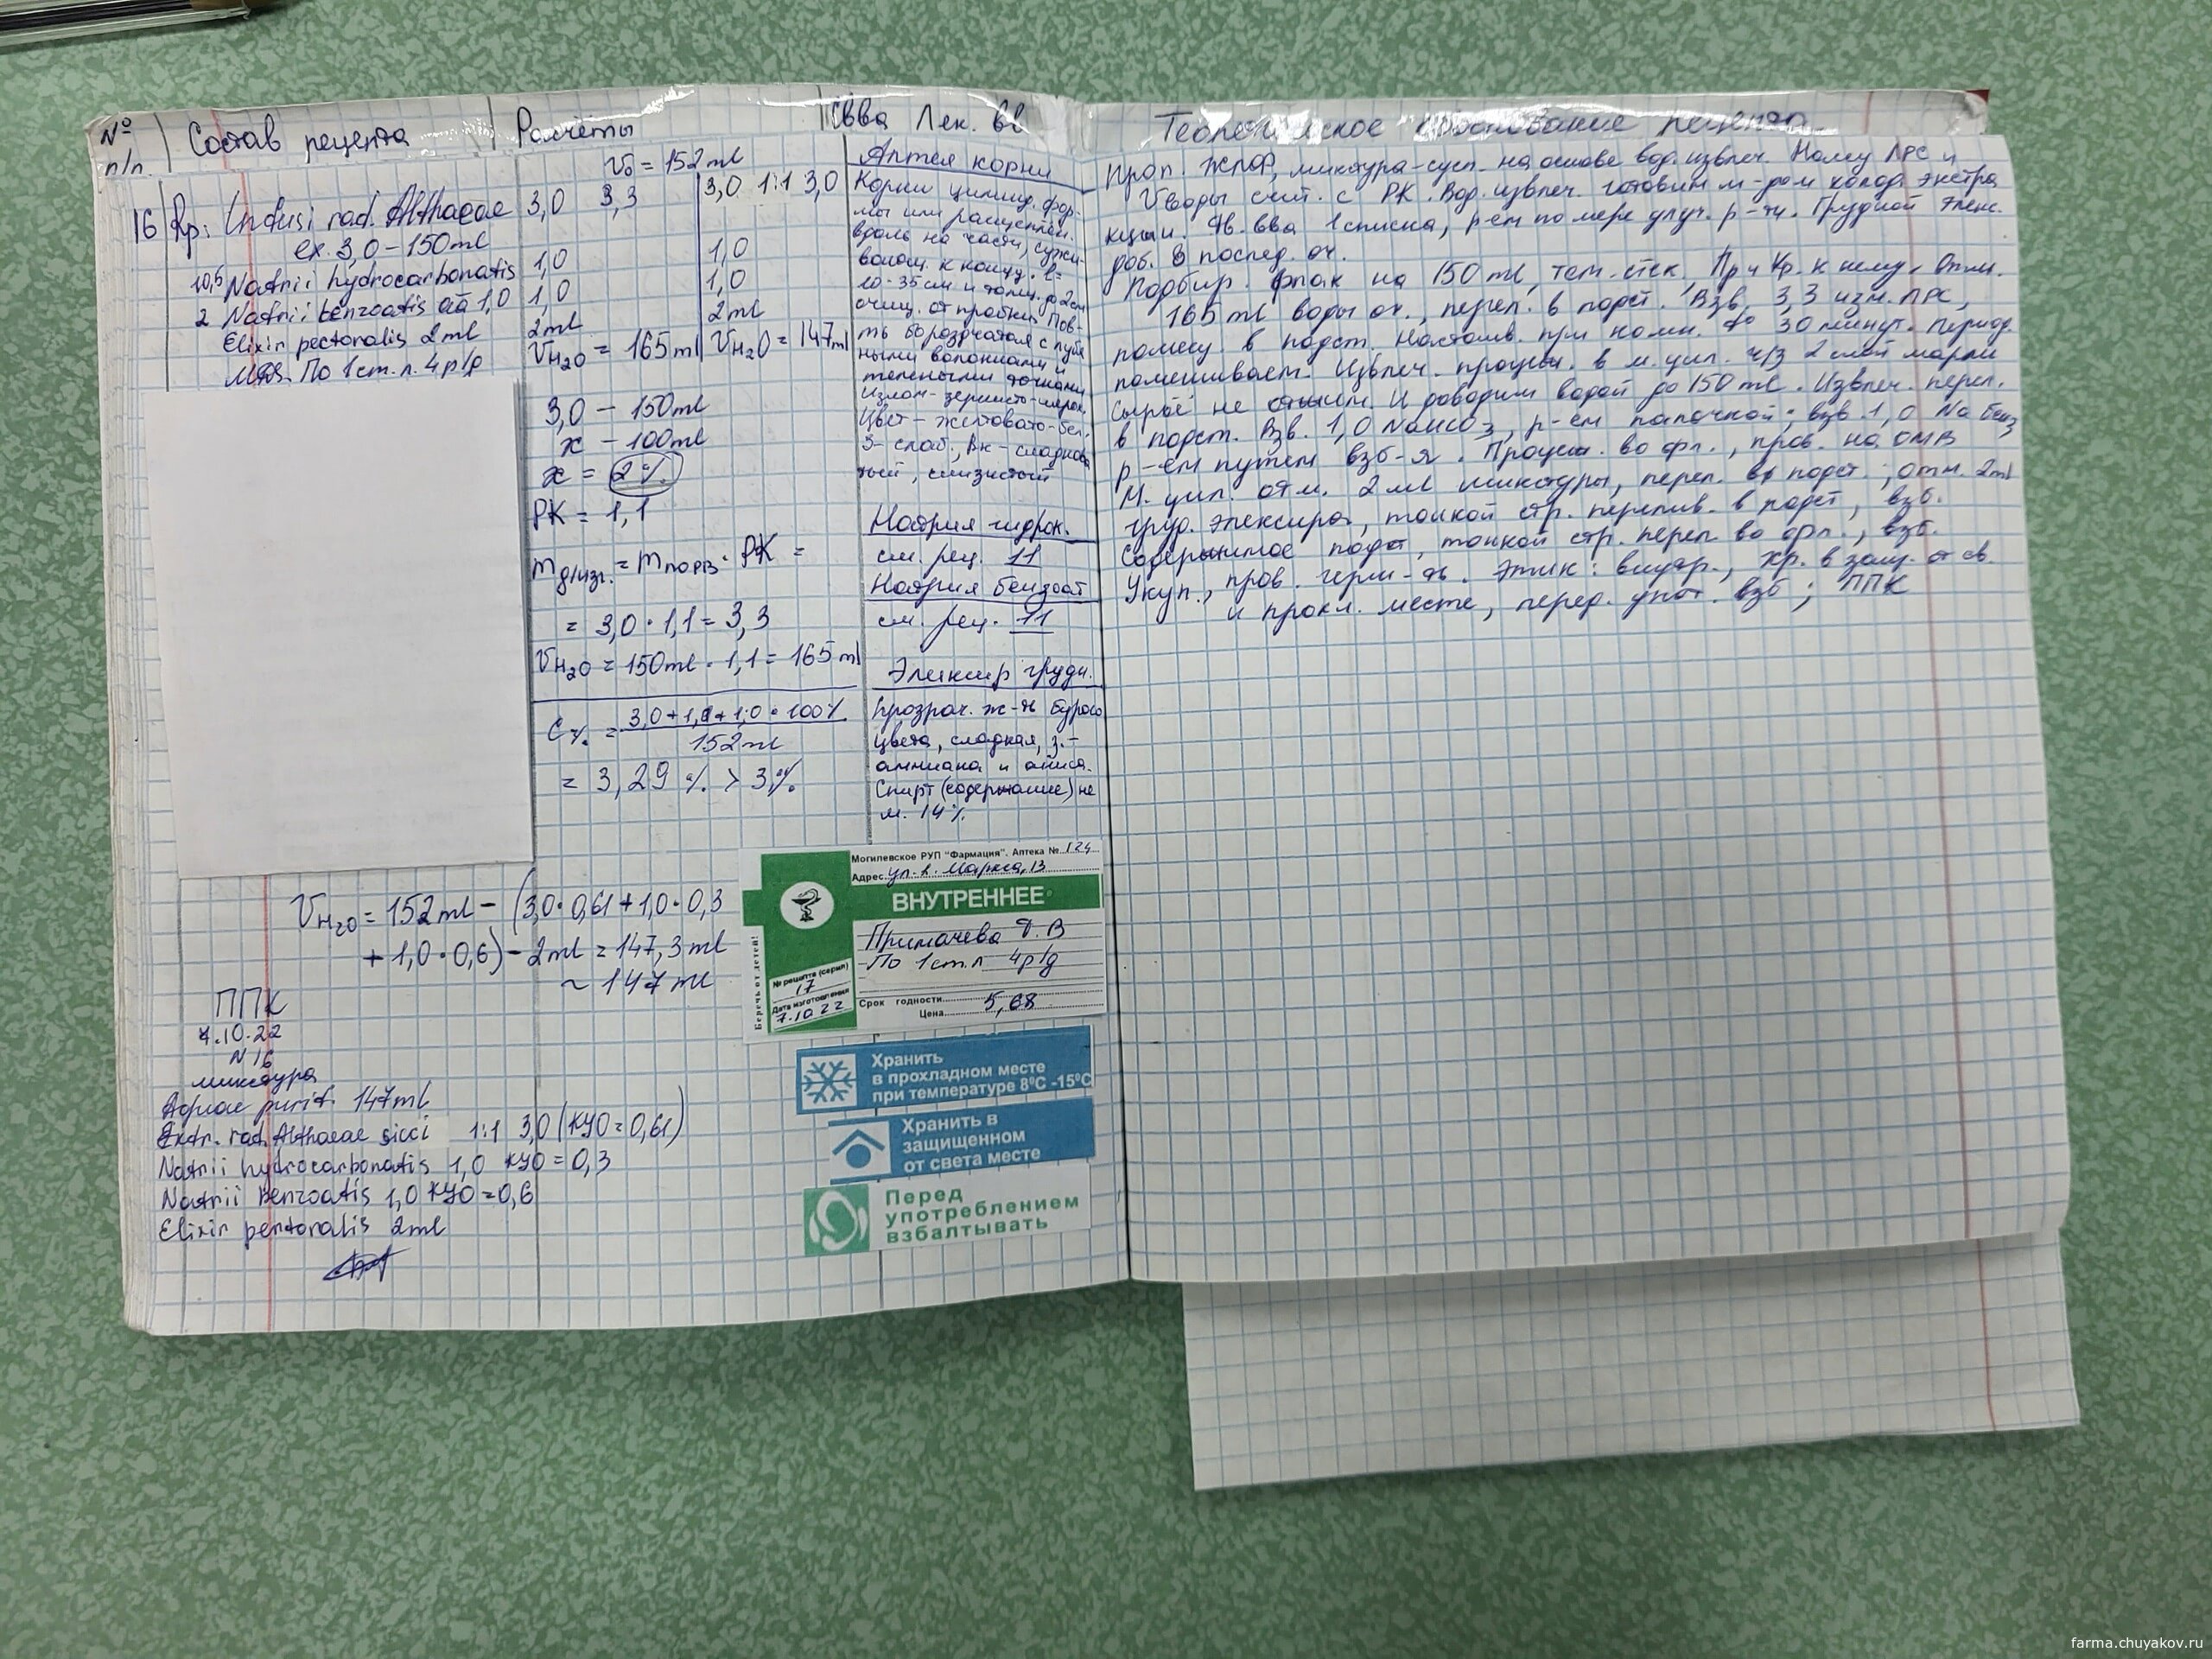 № п/п.
Состав рецепта
Расчёты
Св-ва Лек. в-в
Теоретическое обоснование рецепта
16 Rp: Infusi rad. Althaeae
ex. 3,0 – 150 ml
Natrii hydrocarbonatis
Natrii benzoatis aa 1,0
Elixir pectoralis 2 ml
MDS. По 1 ст. л. 4 р/д
V₀ = 152 ml
3,0 3,3 3,0 1:1 3,0
1,0 1,0
1,0 1,0
2 ml 2 ml
V H₂O = 165 ml V H₂O = 147 ml
3,0 – 150 ml
x – 100 ml
x = 2 %
РК = 1,1
m д/изг. = m пороп. · РК =
= 3,0 · 1,1 = 3,3
V H₂O = 150 ml · 1,1 = 165 ml
C% = 3,0 + 1,0 + 1,0 · 100 %
152 ml
= 3,29 % > 3 %
V H₂O = 152 ml – (3,0 · 0,61 + 1,0 · 0,3
+ 1,0 · 0,6) – 2 ml = 147,3 ml
~ 147 ml
ППК
7.10.22
N 16
микстура
Aquae purif. 147 ml
Extr. rad. Althaeae sicci 1:1 3,0 (КУО = 0,61)
Natrii hydrocarbonatis 1,0 КУО = 0,3
Natrii benzoatis 1,0 КУО = 0,6
Elixir pectoralis 2 ml
Алтея корни
Корни цилинд. фор-
мы или расщеплен.
вдоль на части, сужи-
вающ. к концу. l=
10-35 см и толщ. до 2 см
очищ. от пробки. Пов-
ть бороздчатая с лубя
ными волокнами и
точками
Излом - зернисто-шерох.
Цвет - желтовато-бел.
З - слаб., Вк - сладкова
тый, слизистый
Натрия гидрок.
см. рец. 11
Натрия бензоат
см. рец. 11
Эликсир грудн.
Прозрач. ж-ть бурого
цвета, сладкая, з. -
аммиака и аниса.
Спирт (содержание) не
м. 14 %
Могилевское РУП "Фармация". Аптека № 124
Адрес ул. К. Маркса, 13
ВНУТРЕННЕЕ
Примачева Т. В
По 1 ст. л 4 р/д
Беречь от детей!
№ рецепта (серия)
17
Дата изготовления
7.10 22
Срок годности
Цена 5,68
Хранить
в прохладном месте
при температуре 8⁰C -15⁰C
Хранить в
защищенном
от света месте
Перед
употреблением
взбалтывать
Проп. ЖЛФ, микстура-сусп. на основе вод. извлеч. Массу ЛРС и
V воды счит. с РК. Вод. извлеч. готовим м-дом холод. экстра
кции. Тв. в-ва 1 списка, р-ем по мере улуч. р-ти. Грудной элекс.
доб. в послед. оч.
Подбир. флак на 150 ml, тем. стек, Пр и Кр. к нему. Отм.
165 ml воды оч., перел. в подст. Взв. 3,3 изм. ЛРС,
помещ. в подст. Настаив. при комн. t° 30 минут. Период.
помешивает. Извлеч. процеж. в м. цил. ч/з 2 слой марли
Сырьё не отжим. И доводим водой до 150 ml. Извлеч. перел.
в подст. Взв. 1,0 NaHCO₃, р-ем палочкой; взв. 1,0 Na бенз
р-ем путем взб-я. Процеж. во фл., пров. на ОМВ
М. цил. отм. 2 мл микстуры, перел. в подст.; отм. 2 ml
груд. элексира, тонкой стр. перелив. в подст, взб.
Содержимое подст, тонкой стр. перел. во фл., взб.
Укуп., пров. герм-ть. Этик: внутр., Хр. в защ. от св.
и прохл. месте, перед. упот. взб; ППК
farma.chuyakov.ru